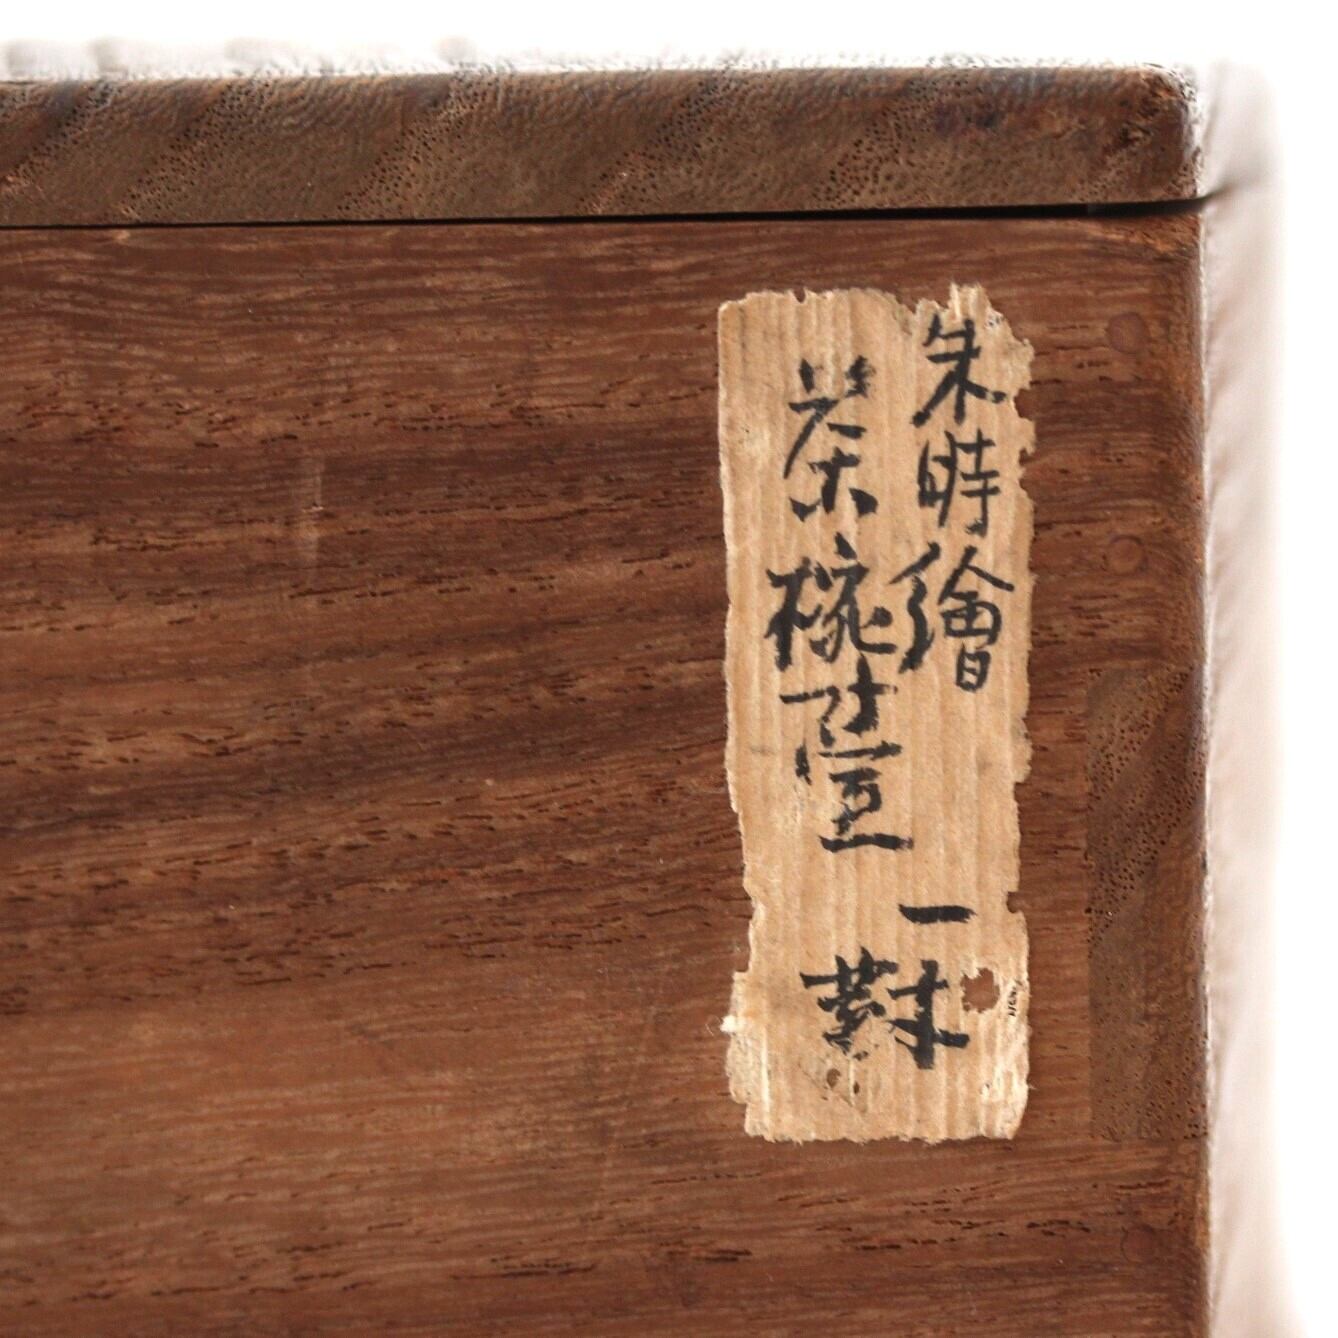 朱時繪
茶椀臺
一